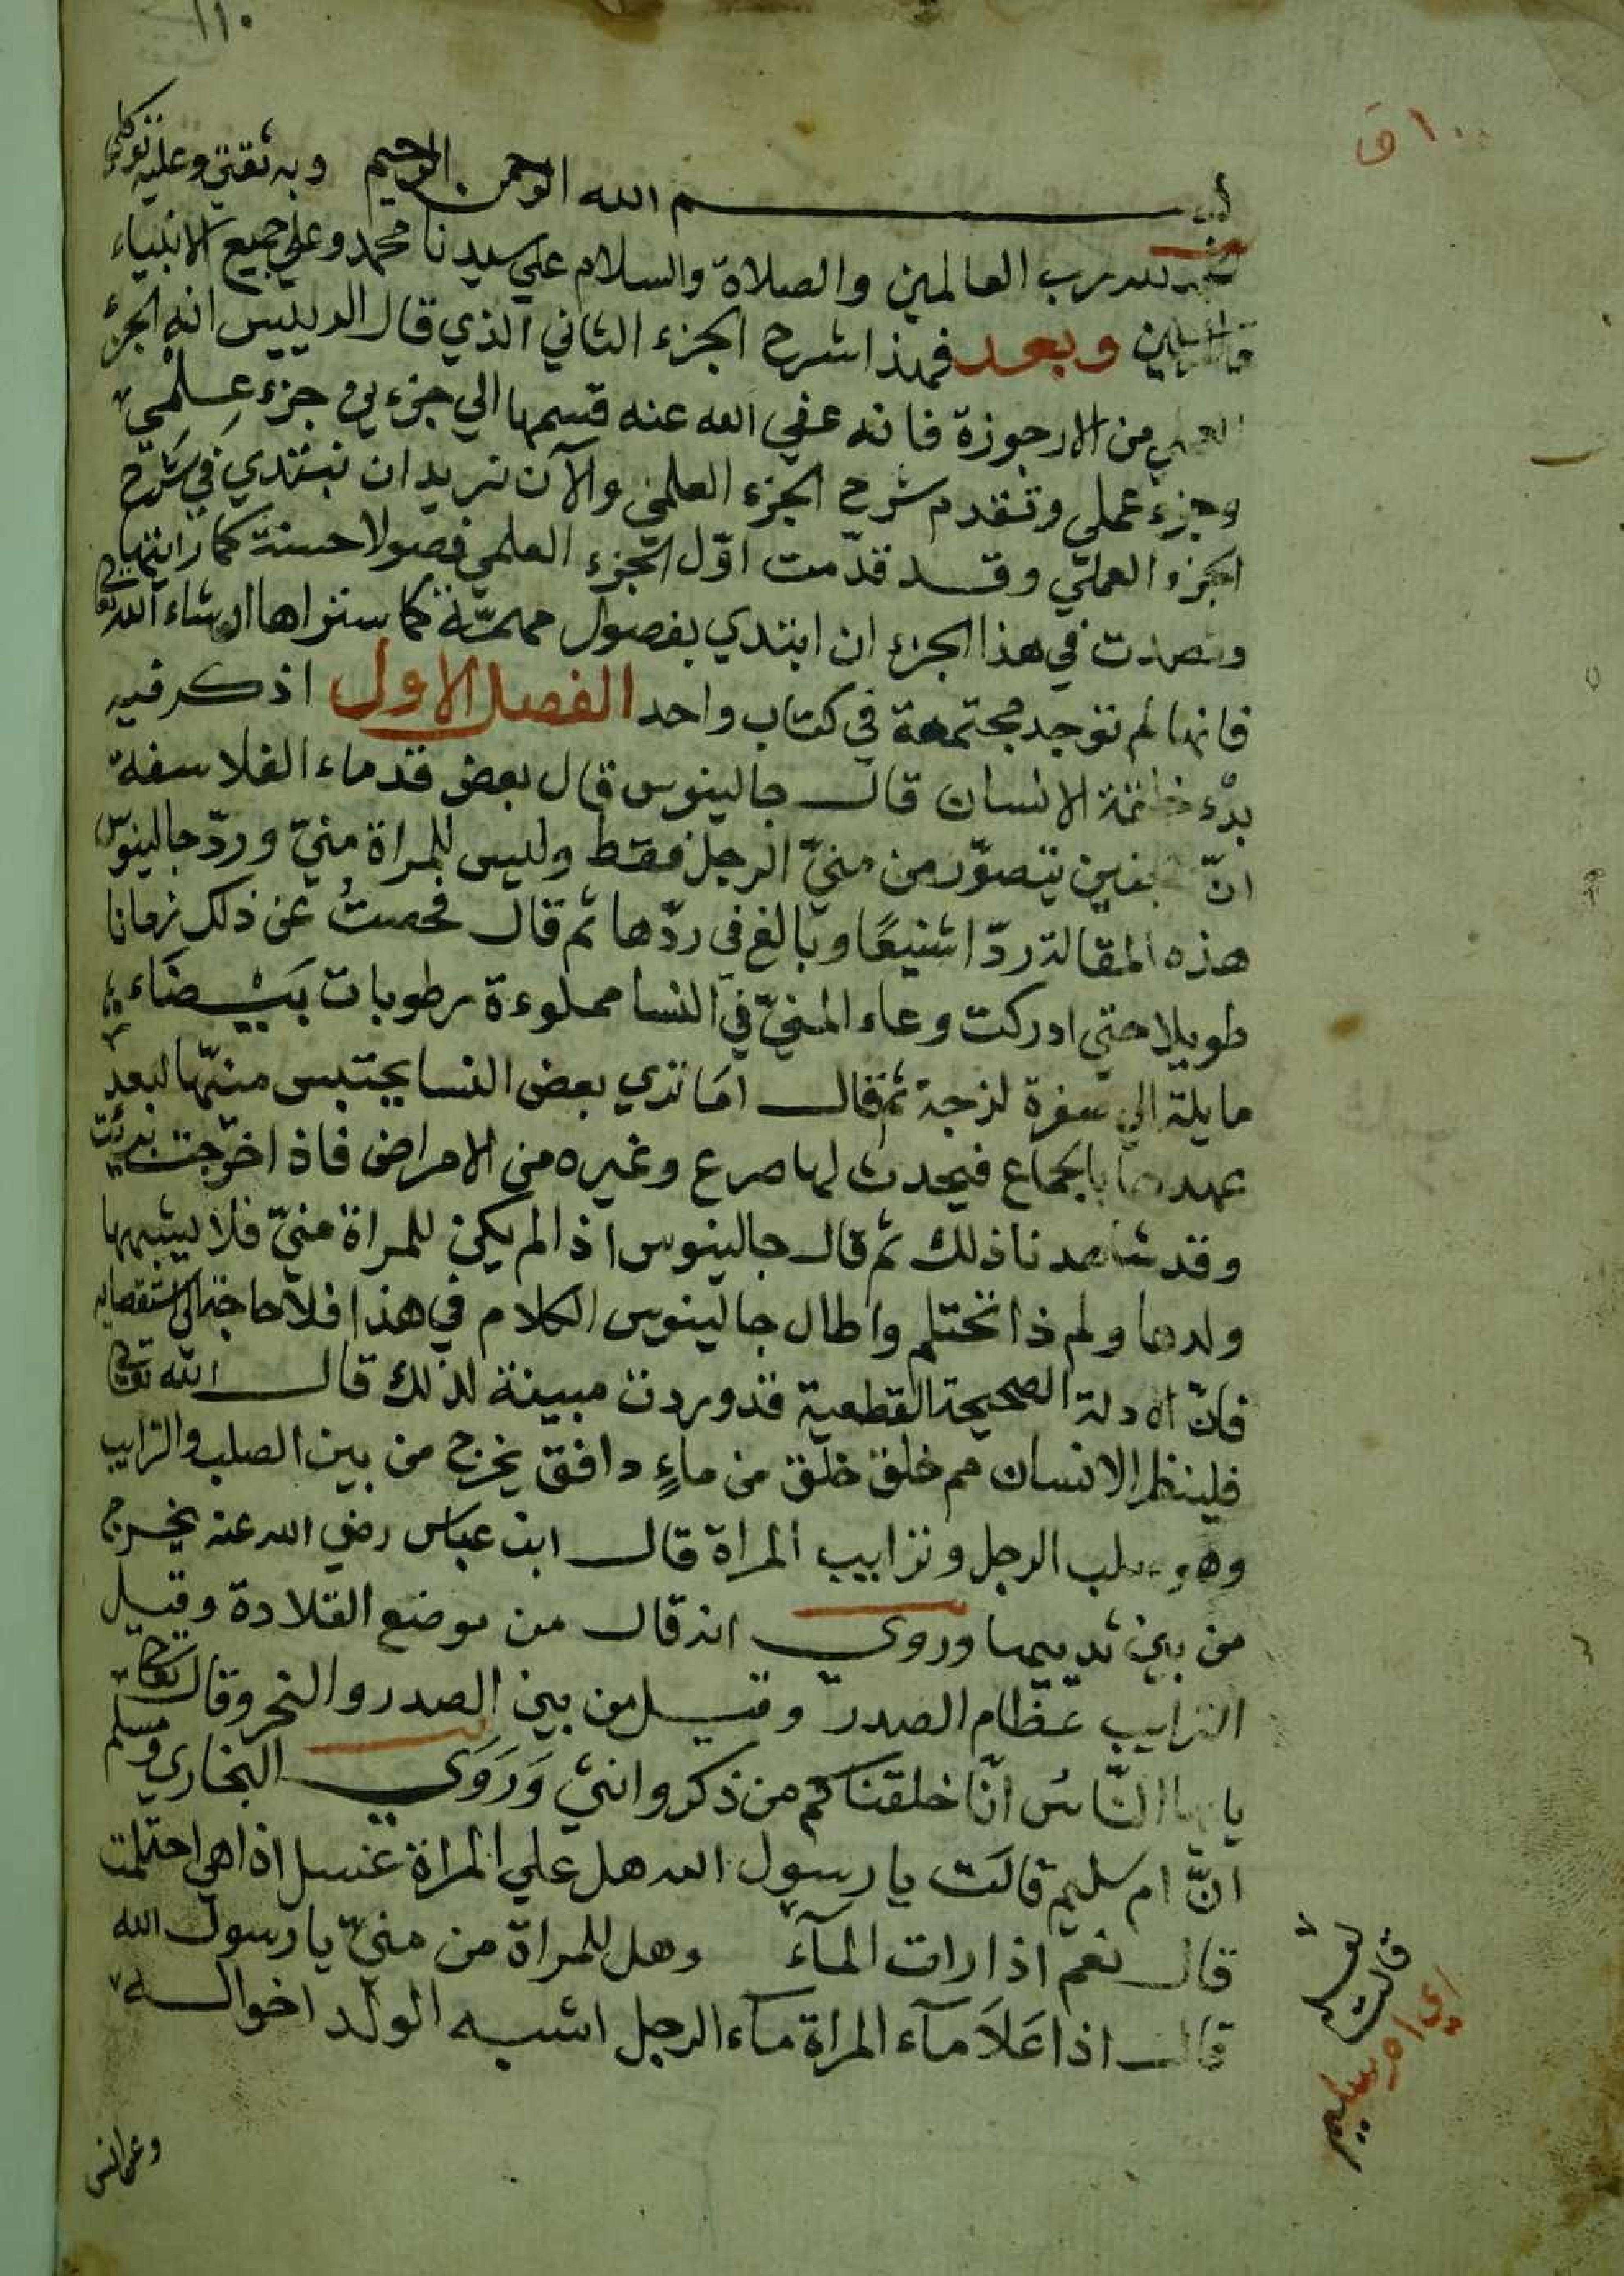 ١١٠
١٠٠ ق
بسم الله الرحمن الرحيم وبه ثقتي وعليه توكلي
لله رب العالمين والصلاة والسلام علي سيدنا محمد وعلي جميع الانبياء
والمرسلين وبعد فهذا شرح الجزء الثاني الذي قال الرييس انه الجزء
العملي من الارجوزة فانه عفي الله عنه قسمها الي جزءين جزء علمي
وجزء عملي وتقدم شرح الجزء العلمي والآن نريد ان نبتدي في شرح
الجزء العملي وقد قدّمت اوّل الجزء العلمي فصولا حسنة كما رايتها
وقصدت في هذا الجزء ان ابتدي بفصول مهمّة كما ستراها ان شاء الله تعالي
فانها لم توجد مجتمعة في كتاب واحد الفصل الاول اذكر فيه
بدْء خلقة الانسان قال جالينوس قال بعض قدماء الفلاسفة
انّ الجنين يتصوّر من منيّ الرجل فقط وليس للمراة منيّ وردّ جالينوس
هذه المقالة ردّا شنيعًا وبالغ في ردّها ثم قال فحصتُ عن ذلك زمانا
طويلا حتي ادركت وعاء المنيّ في النسا مملوءة رطوبات بيضاء
مايلة الي صفرة لزجة ثم قال امَا تري بعض النسا يحتبس منيّها لبعد
عهدها بالجماع فيحدث لها صرع وغيره من الامراض فاذا خرجت برئت
وقد شاهدنا ذلك ثم قال جالينوس اذا لم يكن للمراة منيّ فلا يشبهها
ولدها ولم ذا تحتلم واطال جالينوس الكلام في هذا فلا حاجة الي استقصايه
فانّ الادلة الصحيحة القطعية قد وردت مبينة لذلك قال الله تعالي
فلينظر الانسان مم خلق خلق من ماءٍ دافق يخرج من بين الصلب والترايب
وهو صلب الرجل وترايب المراة قال ابن عباس رضي الله عنه يخرج
من بين ثدييها وروي انه قال من موضع القلادة وقيل
الترايب عظام الصدر وقيل من بين الصدر والنحر وقال تعالي
يا ايها النّاسُ انّا خلقناكم من ذكر وانثي وَرَوَي البخاري ومسلم
انّ ام سليم قالت يا رسول الله هل علي المراة غسل اذا هي احتلمت
قال نعم اذا رات المآء وهل للمراة من منيّ يا رسول الله
قال اذا عَلاَ مآء المراة مآء الرجل اشبه الولد اخواله
قالت
اي ام سليم
وعن انس